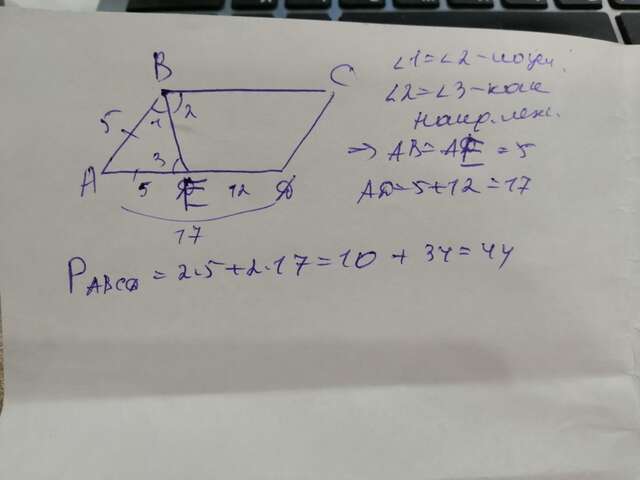 B
C
5
1
2
3
A
5
E
12
D
17
∠1=∠2-
∠2=∠3-как
накр. леж.
=> AB=AE=5
AD=5+12=17
P ABCD = 2·5+2·17=10+34=44